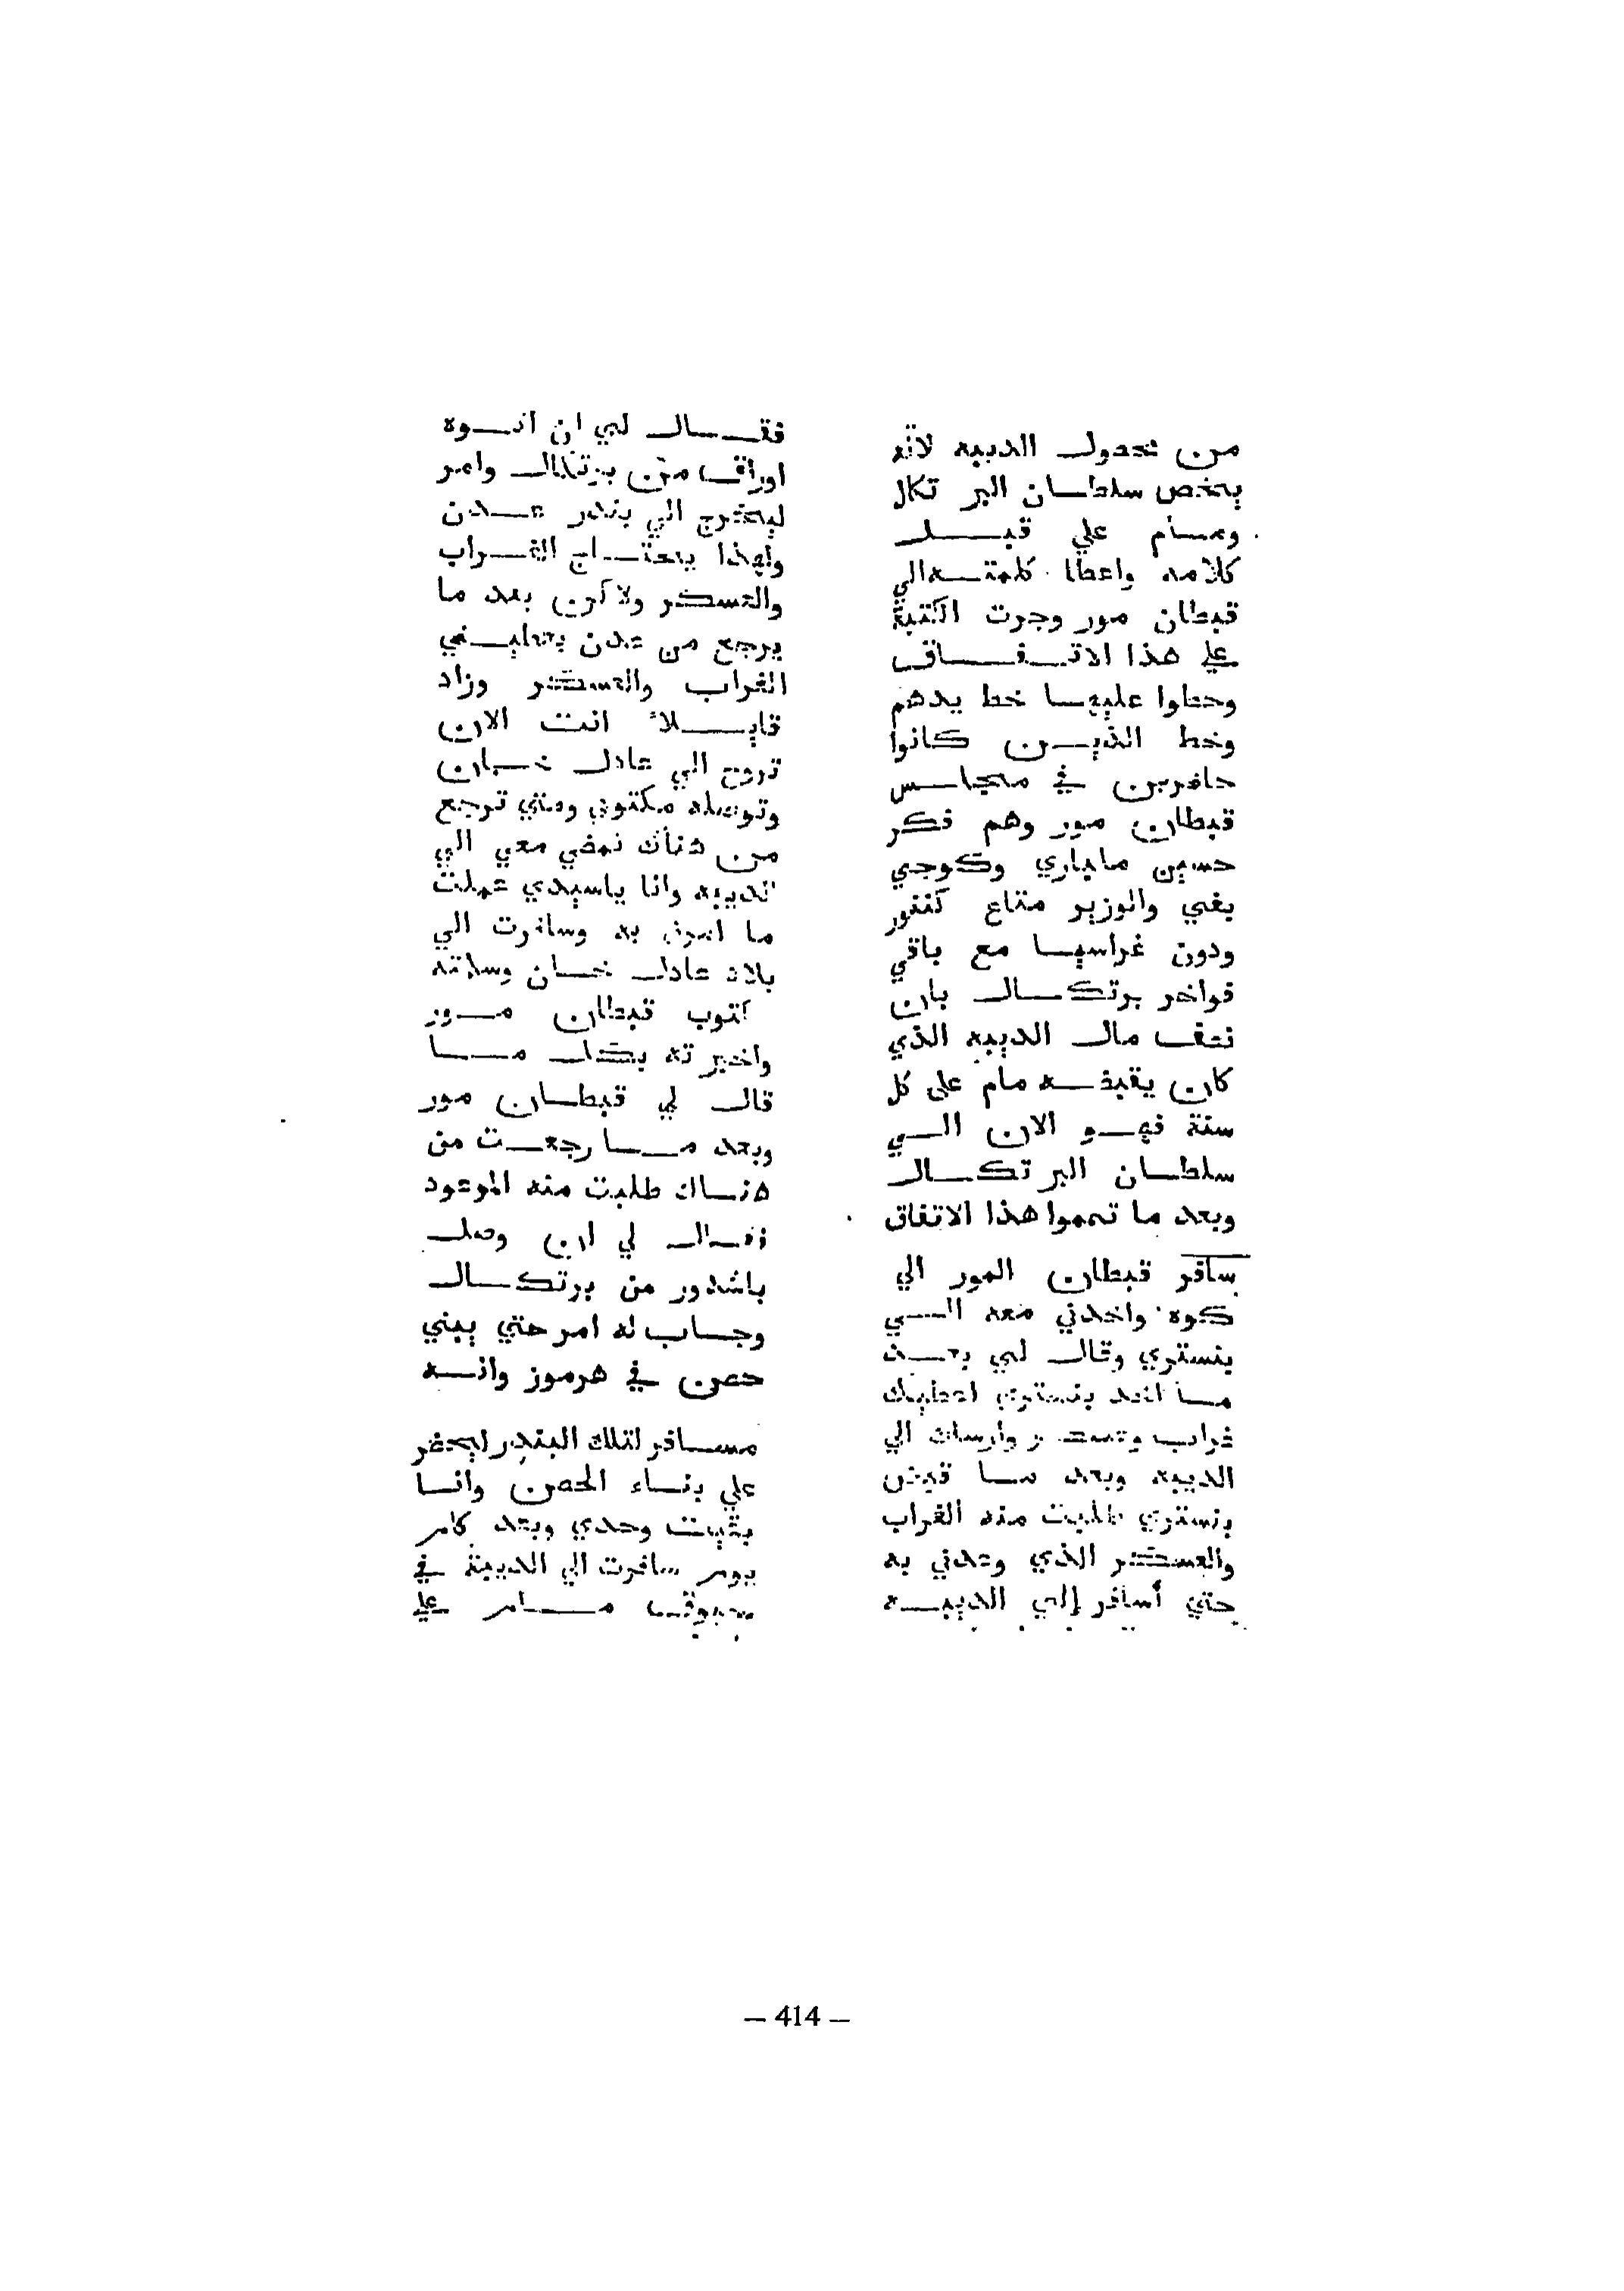 من محصول الديبه لانه
يخص سلطان البر تكال
ومسام علي قبل
كلامه واعطا كلمته الي
قبطان مور وجرت الكتبة
على هذا الاتفاق
وحطوا عليها خط يدهم
وخط الذين كانوا
حاضرين في مجلس
قبطان مور وهم فكر
حسين ماباري وكوجي
يغي والوزير متاع كننور
ودون غراسيا مع باقي
فواخر برتكال بان
نصف مال الديبه الذي
كان يقبضه مام على كل
سنة فهو الان الي
سلطان البر تكال
وبعد ما تمموا هذا الاتفاق
سافر قبطان المور الي
كوه واخدني معه الي
بنستري وقال لي بعد
ما اخد بنستري اعطيك
غراب وعسكر وارسلك الي
الديبه وبعد ما قبض
بنستري طلبت منه الغراب
والعسكر الذي وعدني به
حتي أسافر إلى الديبه
فقال لي ان اتوه
اوراق من برتكال وامر
ليخرج الي بندر عدن
ولهذا يحتاج الغراب
والعسكر ولاكن بعد ما
يرجع من عدن يعطيني
الغراب والعسكر وزاد
قايلاً انت الان
تروح الي عادل خان
وتوصله مكتوبي ومتي ترجع
من هناك تمضي معي الي
الديبه وانا ياسيدي عملت
ما امرني به وسافرت الي
بلاد عادل خان وسلاته
كتوب قبطان مور
واخبر ته بكل ما
قال لي قبطان مور
وبعد ما رجعت من
هناك طلبت منه الموعود
فقال لي ان وصل
باشدور من برتكال
وجاب له امر حتي يبني
حصن في هرموز وانه
مسافر لتلك البندر ليحضر
علي بناء الحصن وانا
بقيت وحدي وبعد كام
يوم سافرت الي الديبة في
مام على
– 414 –